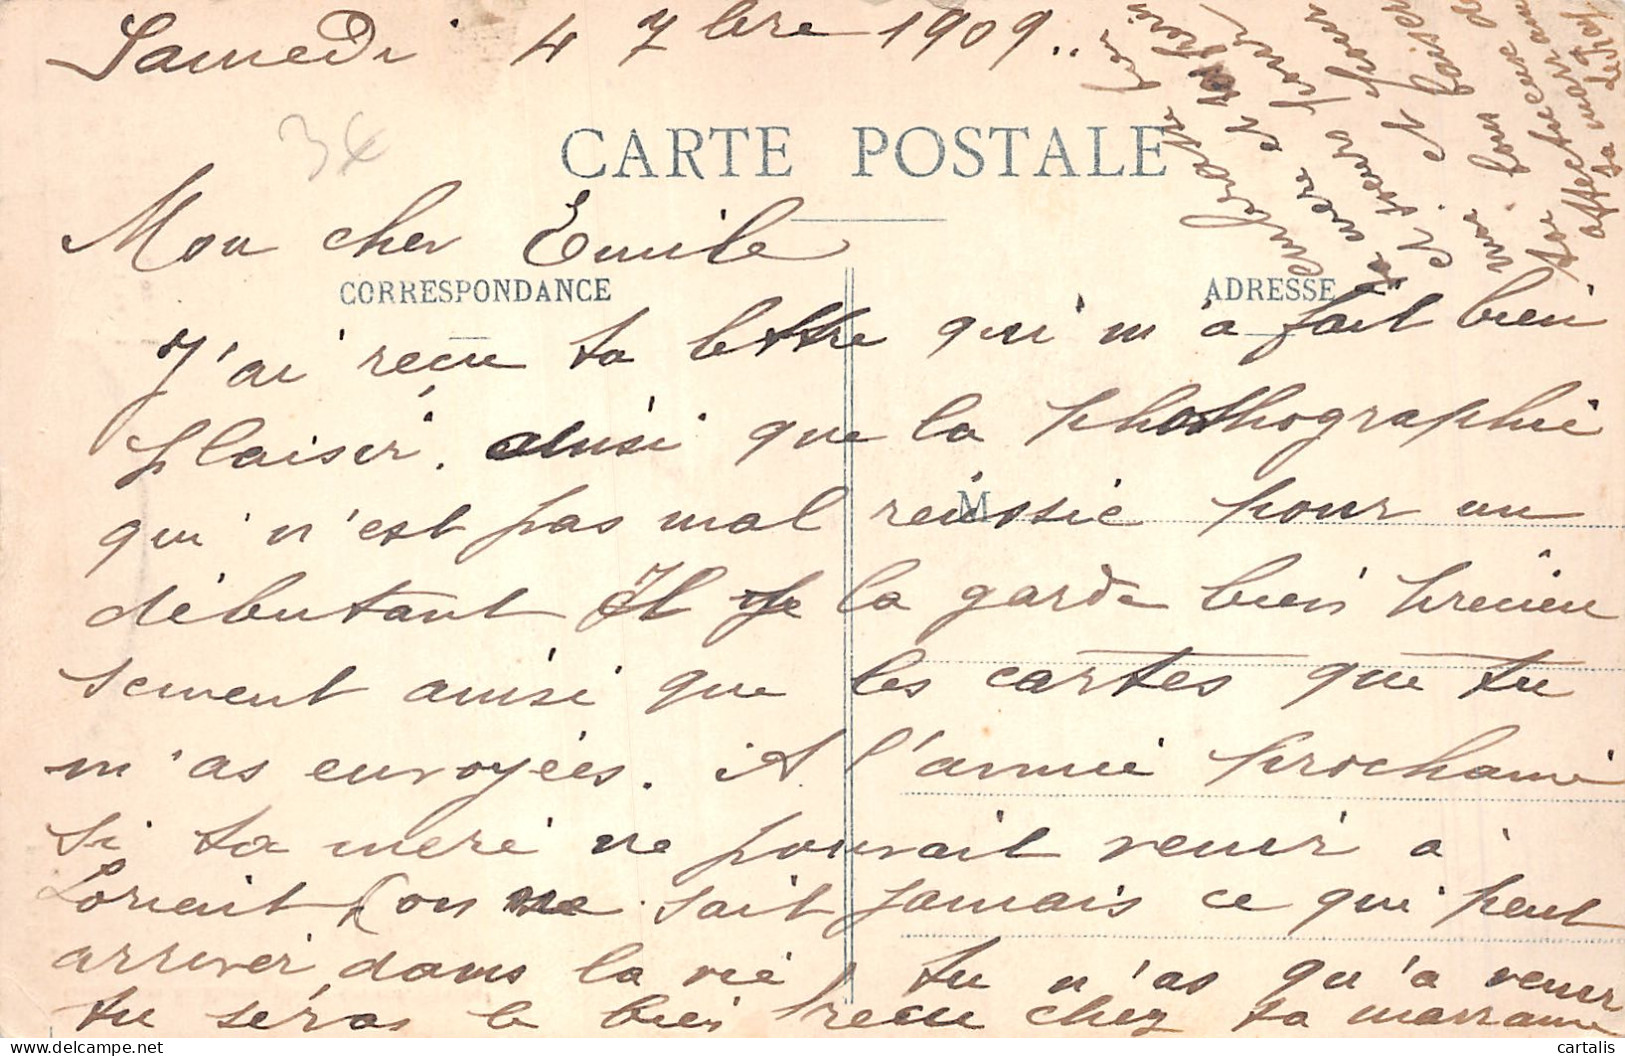 Samedi 4 7bre 1909..
34
CARTE POSTALE
Mon cher Emile
CORRESPONDANCE
ADRESSE
J'ai reçu ta lettre qui m'a fait bien
plaisir. ainsi que la phothographie
M
qui n'est pas mal réussie pour un
débutant Je la garde bien précieu
sement ainsi que les cartes que tu
m'as envoyées. A l'année prochaine
Si ta mère ne pouvait venir à
Lorient (on ne sait jamais ce qui peut
arriver dans la vie) tu n'as qu'à venir
tu séras le bien reçu chez ta marraine
embrasse bien
ta mère et pour
et et baiser
ton
affectionne
ta marraine
cartalis